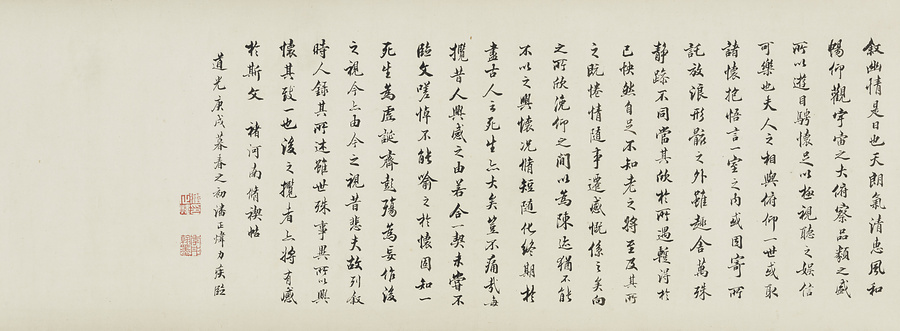 叙幽情是日也天朗氣清惠風和
暢仰觀宇宙之大俯察品類之盛
所以遊目騁懷足以極視聽之娛信
可樂也夫人之相與俯仰一世或取
諸懷抱悟言一室之內或因寄所
託放浪形骸之外雖趣舍萬殊
靜躁不同當其欣於所遇蹔得於
己快然自足不知老之將至及其所
之既惓情隨事遷感慨係之矣向
之所欣俛仰之間以為陳迹猶不能
不以之興懷況脩短隨化終期於
盡古人云死生亦大矣豈不痛哉每
攬昔人興感之由若合一契未嘗不
臨文嗟悼不能喻之於懷固知一
死生為虛誕齊彭殤為妄作後
之視今亦由今之視昔悲夫故列叙
時人錄其所述雖世殊事異所以興
懷其致一也後之攬者亦將有感
於斯文 褚河南脩禊帖
道光庚戌暮春之初潘正煒力疾臨